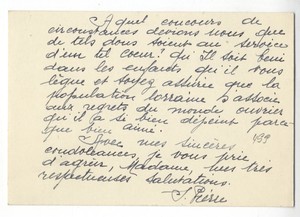 A quel concours de
circonstances devions nous que
de tels dons soient au service
d'un tel cœur? qu'il soit béni
dans les enfants qu'il vous
lègue et soyez assurée que la
population lorraine s'associe
aux regrets du monde ouvrier
qu'il a si bien dépeint parce
que bien aimé.
499
Avec mes sincères
condoléances, je vous prie
d'agréer, Madame, mes très
respectueuses salutations.